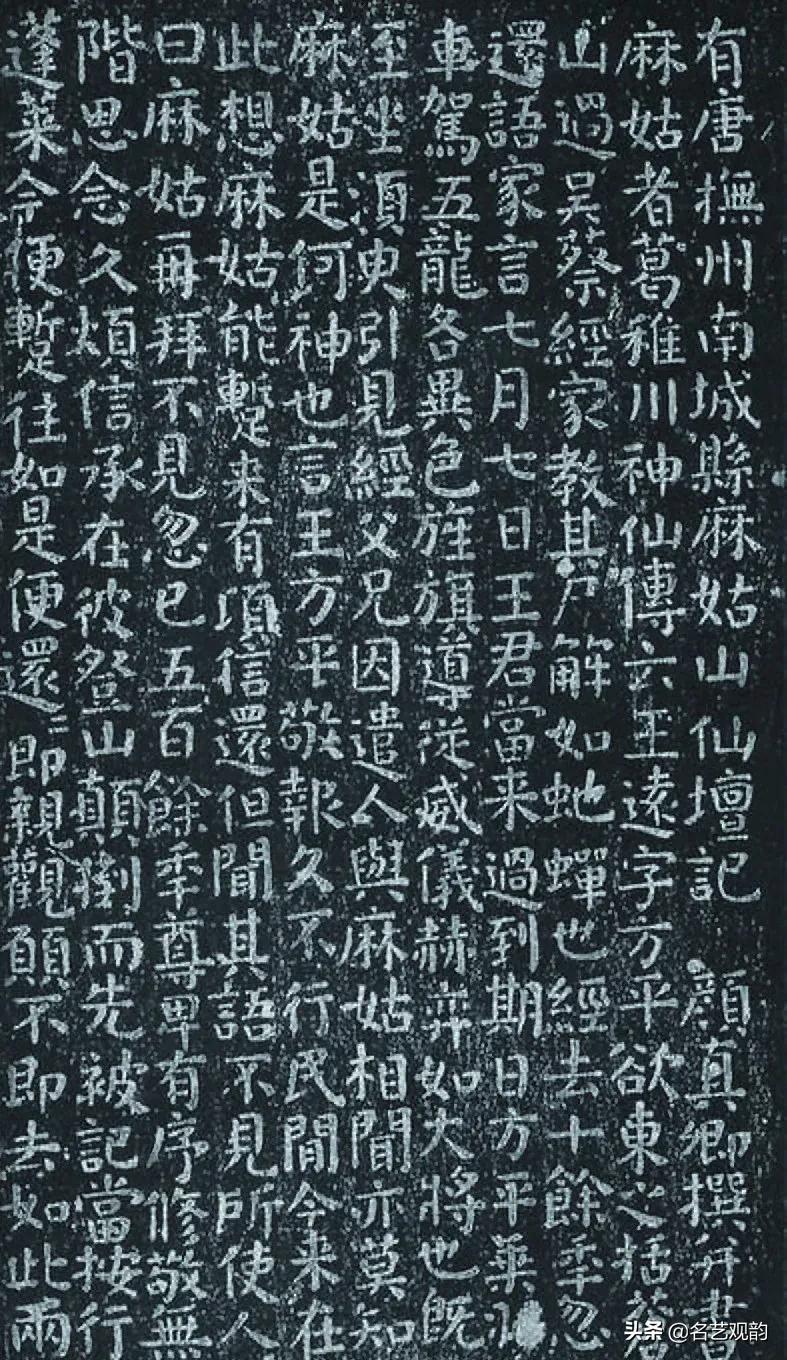 有唐撫州南城縣麻姑山仙壇記 顏真卿撰并書
麻姑者葛稚川神仙傳云王遠字方平欲東之括蒼
山過吳蔡經家教其尸解如虵蟬也經去十餘年忽
還語家言七月七日王君當来過到期日方平乗
車駕五龍各異色旌旗導從威儀赫弈如大將也既
至坐湏臾引見經父兄因遣人與麻姑相聞亦莫知
麻姑是何神也言王方平敬報久不行民間今来在
此想麻姑能暫来有頃信還但聞其語不見所使人
曰麻姑再拜不見忽已五百餘年尊卑有序修敬無
階思念久煩信承在彼登山顛倒而先被記當按行
蓬萊今便蹔往如是便還還即親觀願不即去如此兩
头条 @名艺观韵